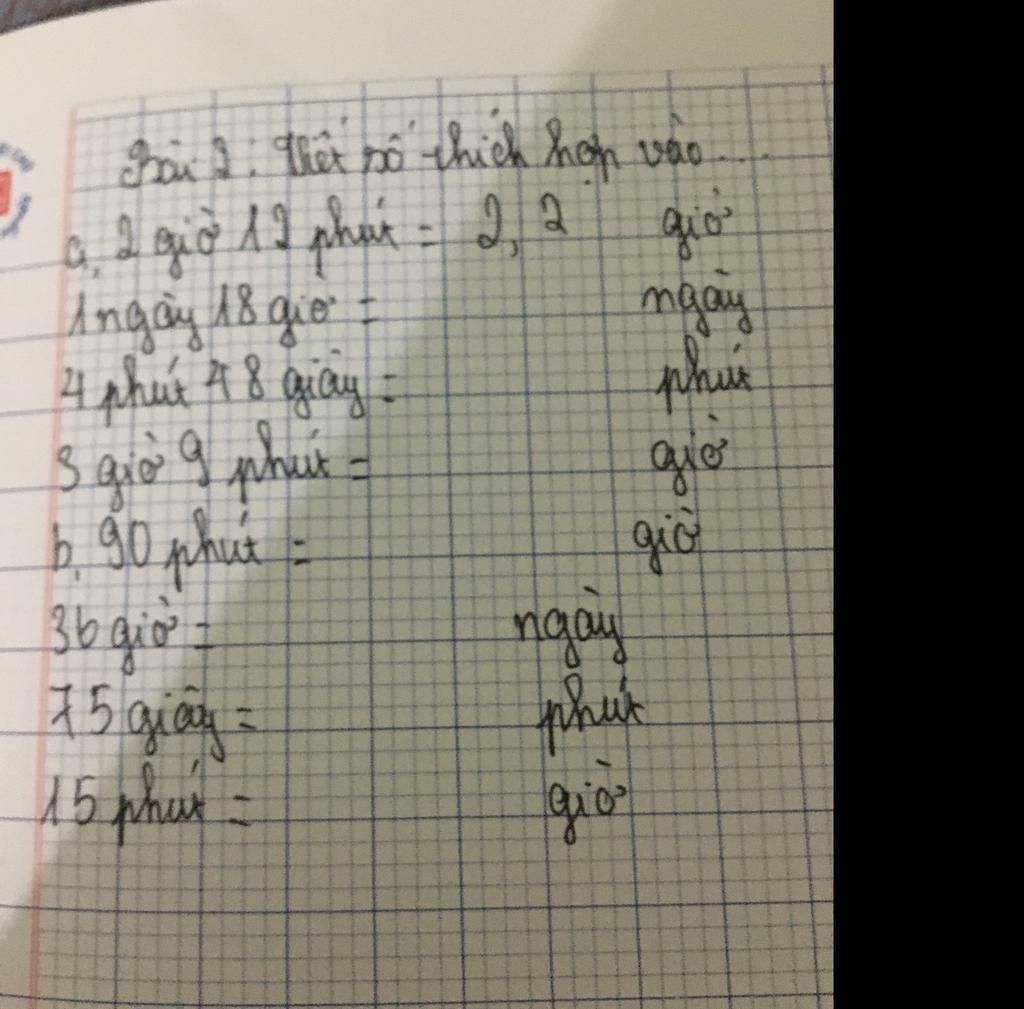 Bài 2: Viết số thích hợp vào....
a, 2 giờ 12 phút = 2,2 giờ
1 ngày 18 giờ = ngày
4 phút 48 giây = phút
3 giờ 9 phút = giờ
b, 90 phút = giờ
36 giờ = ngày
75 giây = phút
15 phút = giờ